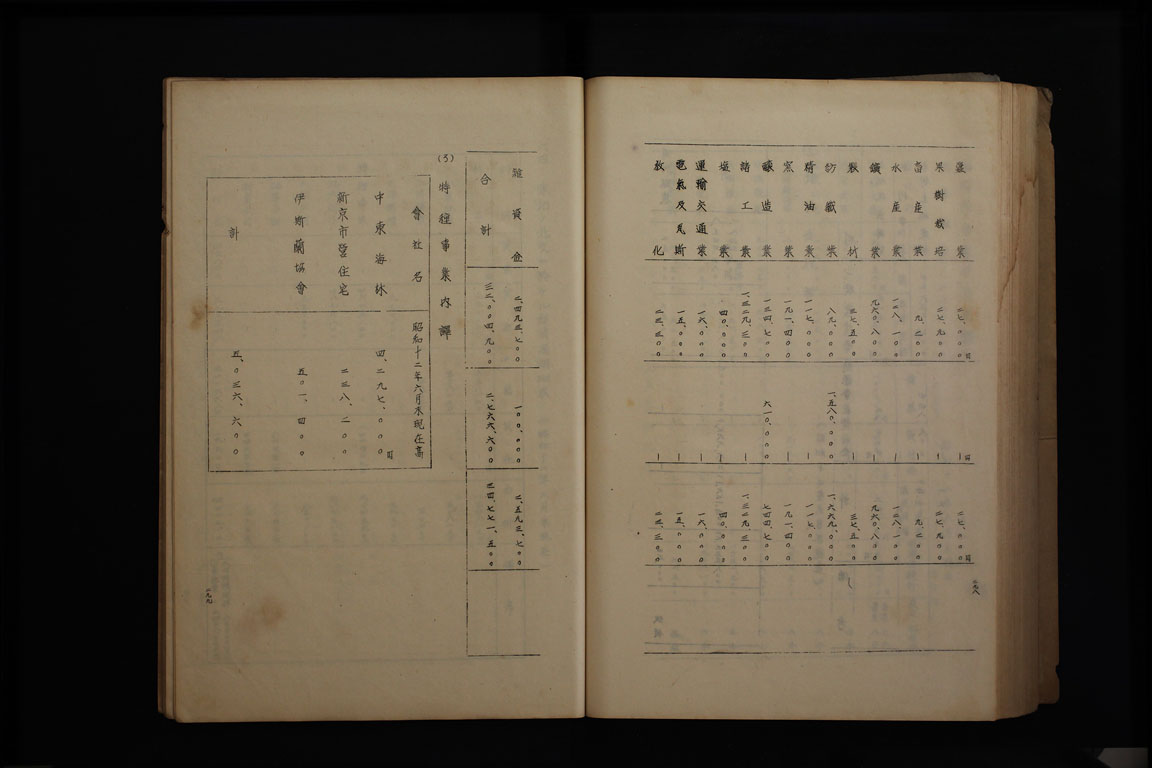 蠶業 二七、〇〇〇円 ー円 二七、〇〇〇円
果樹栽培 二七、九〇〇 ー 二七、九〇〇
畜産業 九、二〇〇 ー 九、二〇〇
水産業 一二八、一〇〇 ー 一二八、一〇〇
鑛業 九六〇、八〇〇 ー 九六〇、八〇〇
製材 三七、五〇〇 ー 三七、五〇〇
紡織業 八九、〇〇〇 一、五八〇、〇〇〇 一、六六九、〇〇〇
精油業 一一七、〇〇〇 ー 一一七、〇〇〇
窯業 一九一、四〇〇 ー 一九一、四〇〇
醸造業 一三四、七〇〇 六一〇、〇〇〇 七四四、七〇〇
諸工業 一、三二九、三〇〇 ー 一、三二九、三〇〇
塩業 四〇、〇〇〇 ー 四〇、〇〇〇
運輸交通業 一六、〇〇〇 ー 一六、〇〇〇
電氣及瓦斯 一五、〇〇〇 ー 一五、〇〇〇
教化 二三、三〇〇 ー 二三、三〇〇
一九八
雜資金 二、四九三、七〇〇 一〇〇、〇〇〇 二、五九三、七〇〇
合計 三二、〇〇四、九〇〇 二、七六六、六〇〇 三四、七七一、五〇〇
(3) 特種事業内譯
會社名 昭和十二年六月末現在高
中東海林 四、二九七、〇〇〇円
新京市營住宅 二三八、二〇〇
伊斯蘭協會 五〇一、四〇〇
計 五、〇三六、六〇〇
一九九